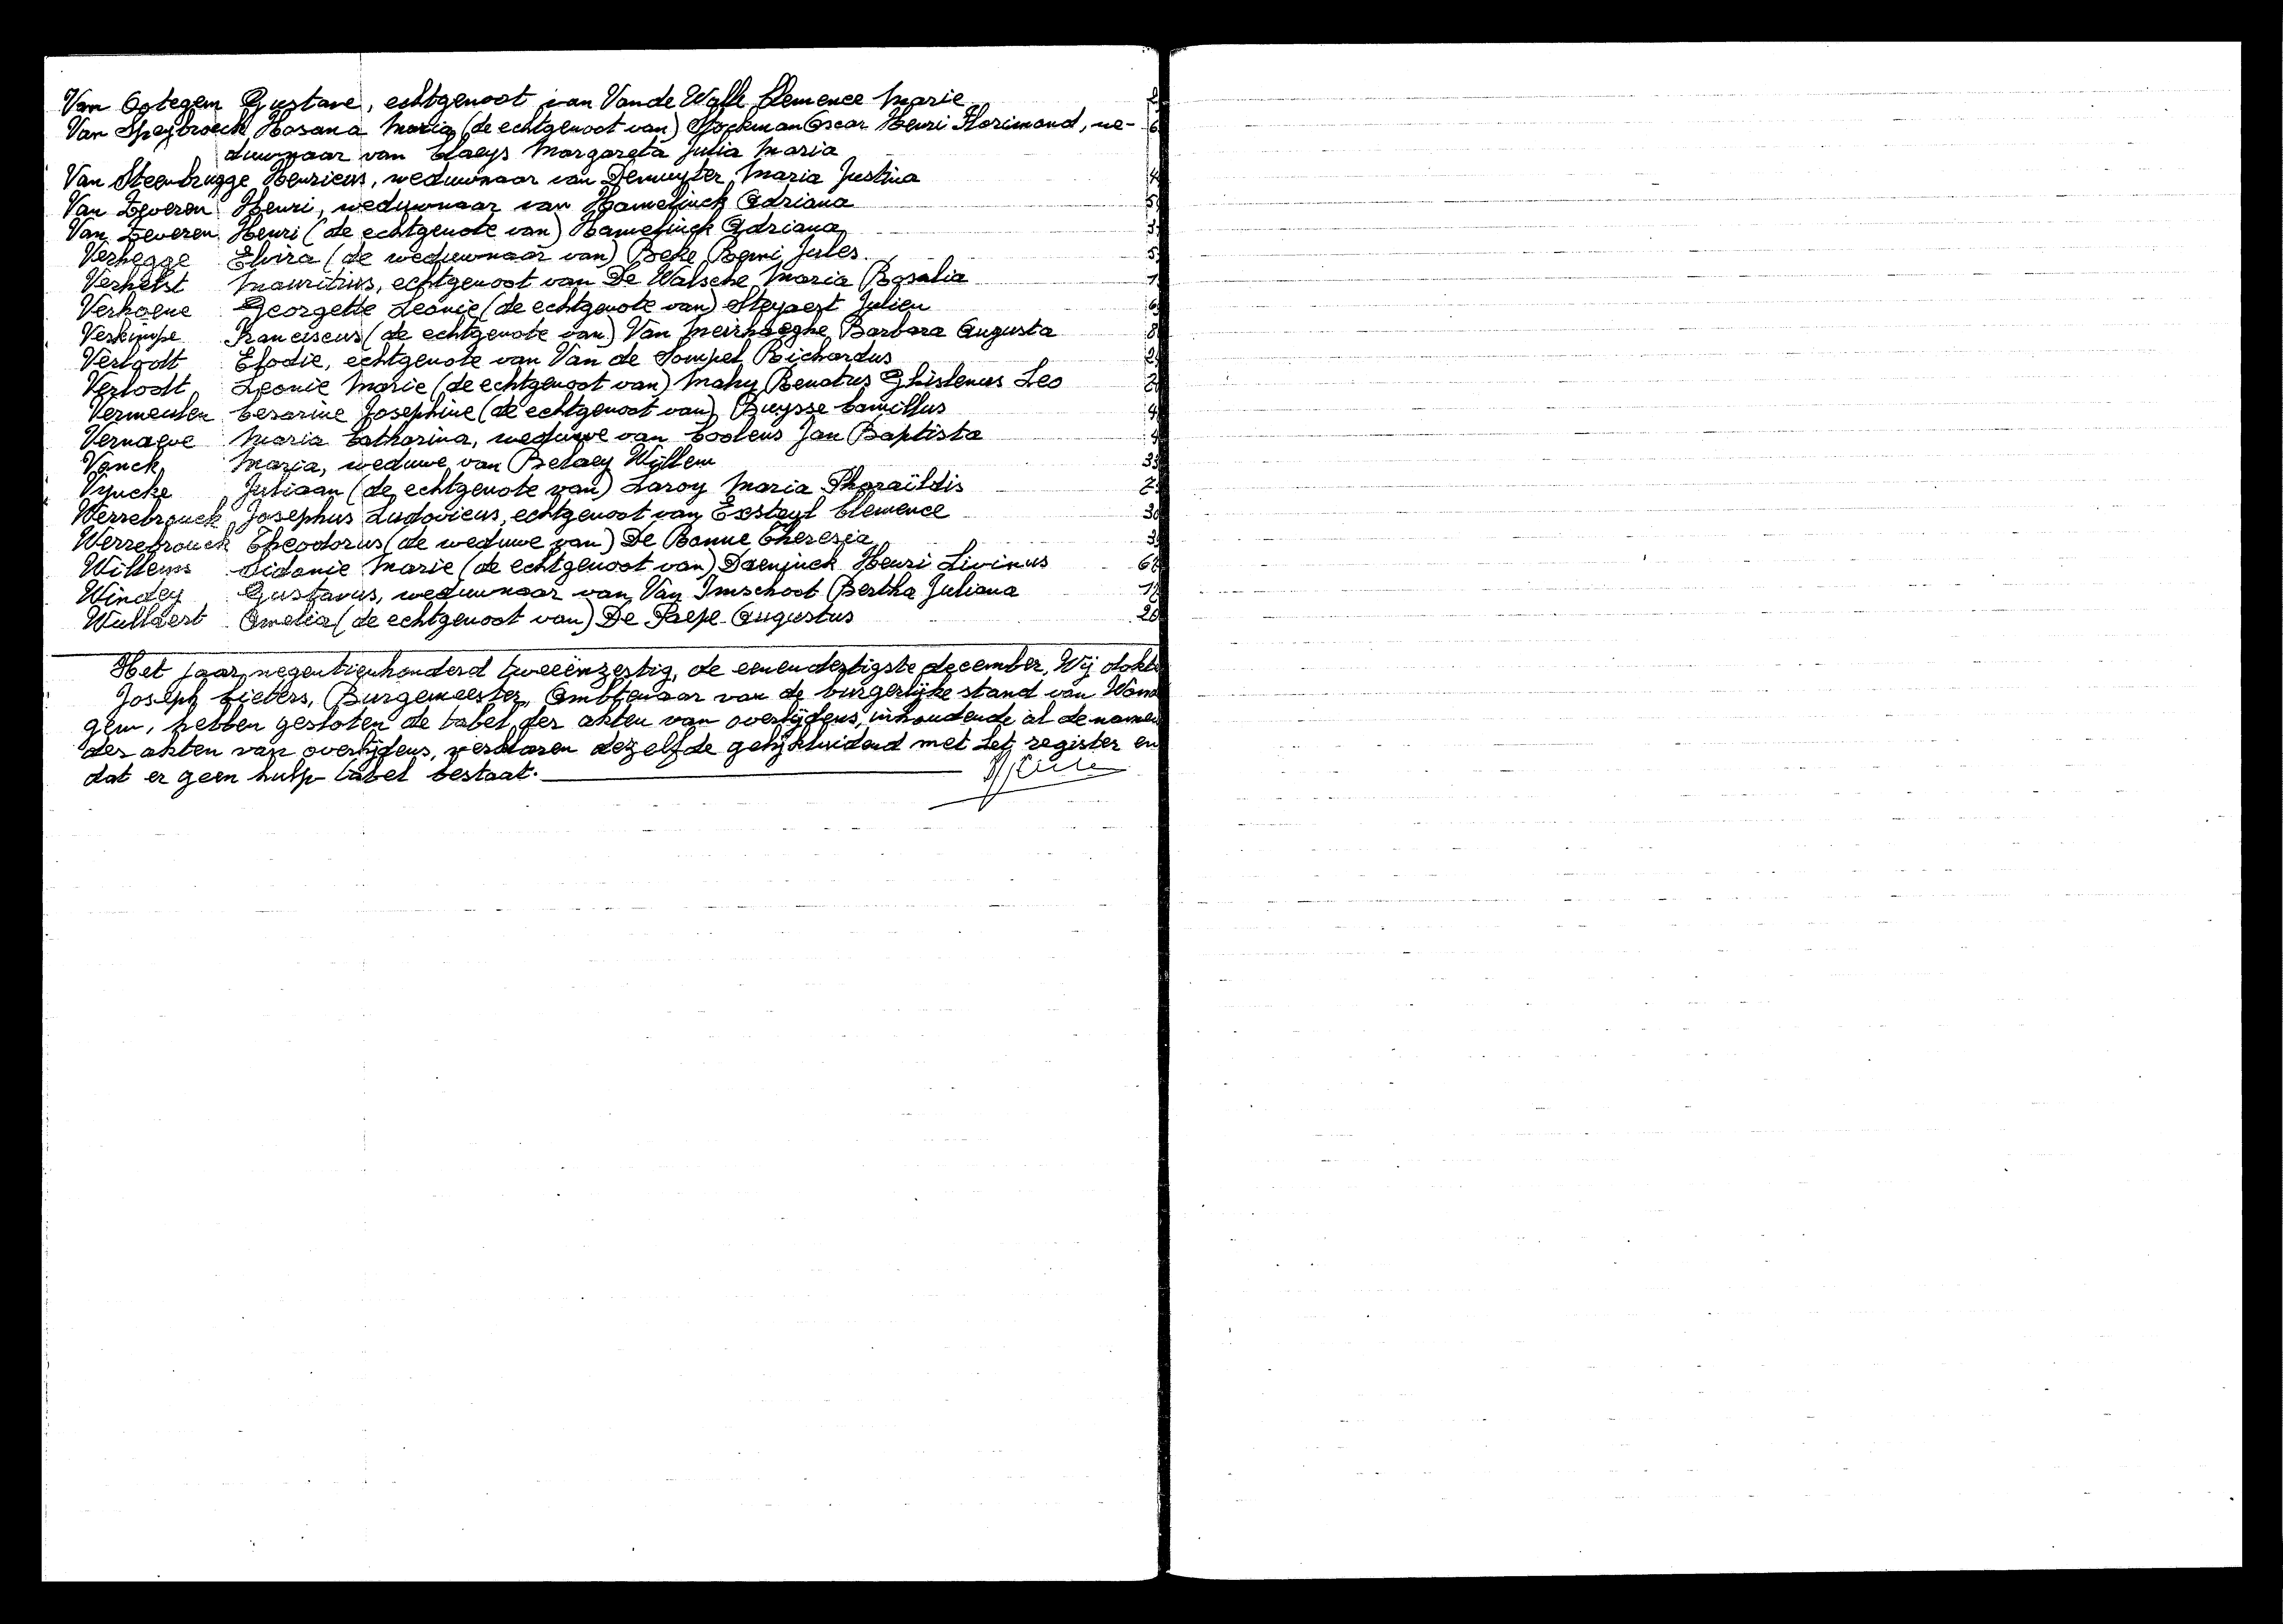 Van Ootegem Gustave, echtgenoot van Van de Walle Clemence Marie
Van Speybroeck Hosana Maria (de echtgenoot van) Stockman Oscar Henri Florimond, we-
duwnaar van Claeys Margareta Julia Maria
Van Steenbrugge Henricus, weduwnaar van Demuyter Maria Justina
Van Zeveren Henri, weduwnaar van Hamelinck Adriana
Van Zeveren Henri (de echtgenote van) Hamelinck Adriana
Verhegge Elvira (de weduwnaar van) Beke Remi Jules
Verhelst Mauritius, echtgenoot van De Walsche Maria Rosalia
Verhoene Georgette Leonie (de echtgenote van) Steyaert Julien
Verkimpe Franciscus (de echtgenote van) Van Meirhaeghe Barbara Augusta
Verloodt Elodie, echtgenote van Van de Sompel Richardus
Verloodt Leonie Marie (de echtgenoot van) Mahy Renatus Ghislenus Leo
Vermeulen Cesarine Josephine (de echtgenoot van) Buysse Camillus
Vernaeve Maria Catharina, weduwe van Coolens Jan Baptista
Vonck Maria, weduwe van Belaey Willem
Vyncke Juliaan (de echtgenote van) Laroy Maria Pharaïldis
Werrebrouck Josephus Ludovicus, echtgenoot van Exsteyl Clemence
Werrebrouck Theodorus (de weduwe van) De Banne Theresia
Willems Sidonie Marie (de echtgenoot van) Daeninck Henri Livinus
Windey Gustavus, weduwnaar van Van Imschoot Bertha Juliana
Wullaert Amelia (de echtgenoot van) De Paepe Augustus
Het jaar negentienhonderd tweeënzestig, de eenendertigste december, Wij dokt
Joseph Liebers, Burgemeester, Ambtenaar van de burgerlijke stand van Won
gem, hebben gesloten de tabel der akten van overlijdens, inhoudende al de namen
der akten van overlijdens, verklaren dezelfde gelijkluidend met het register en
dat er geen hulp-tabel bestaat.